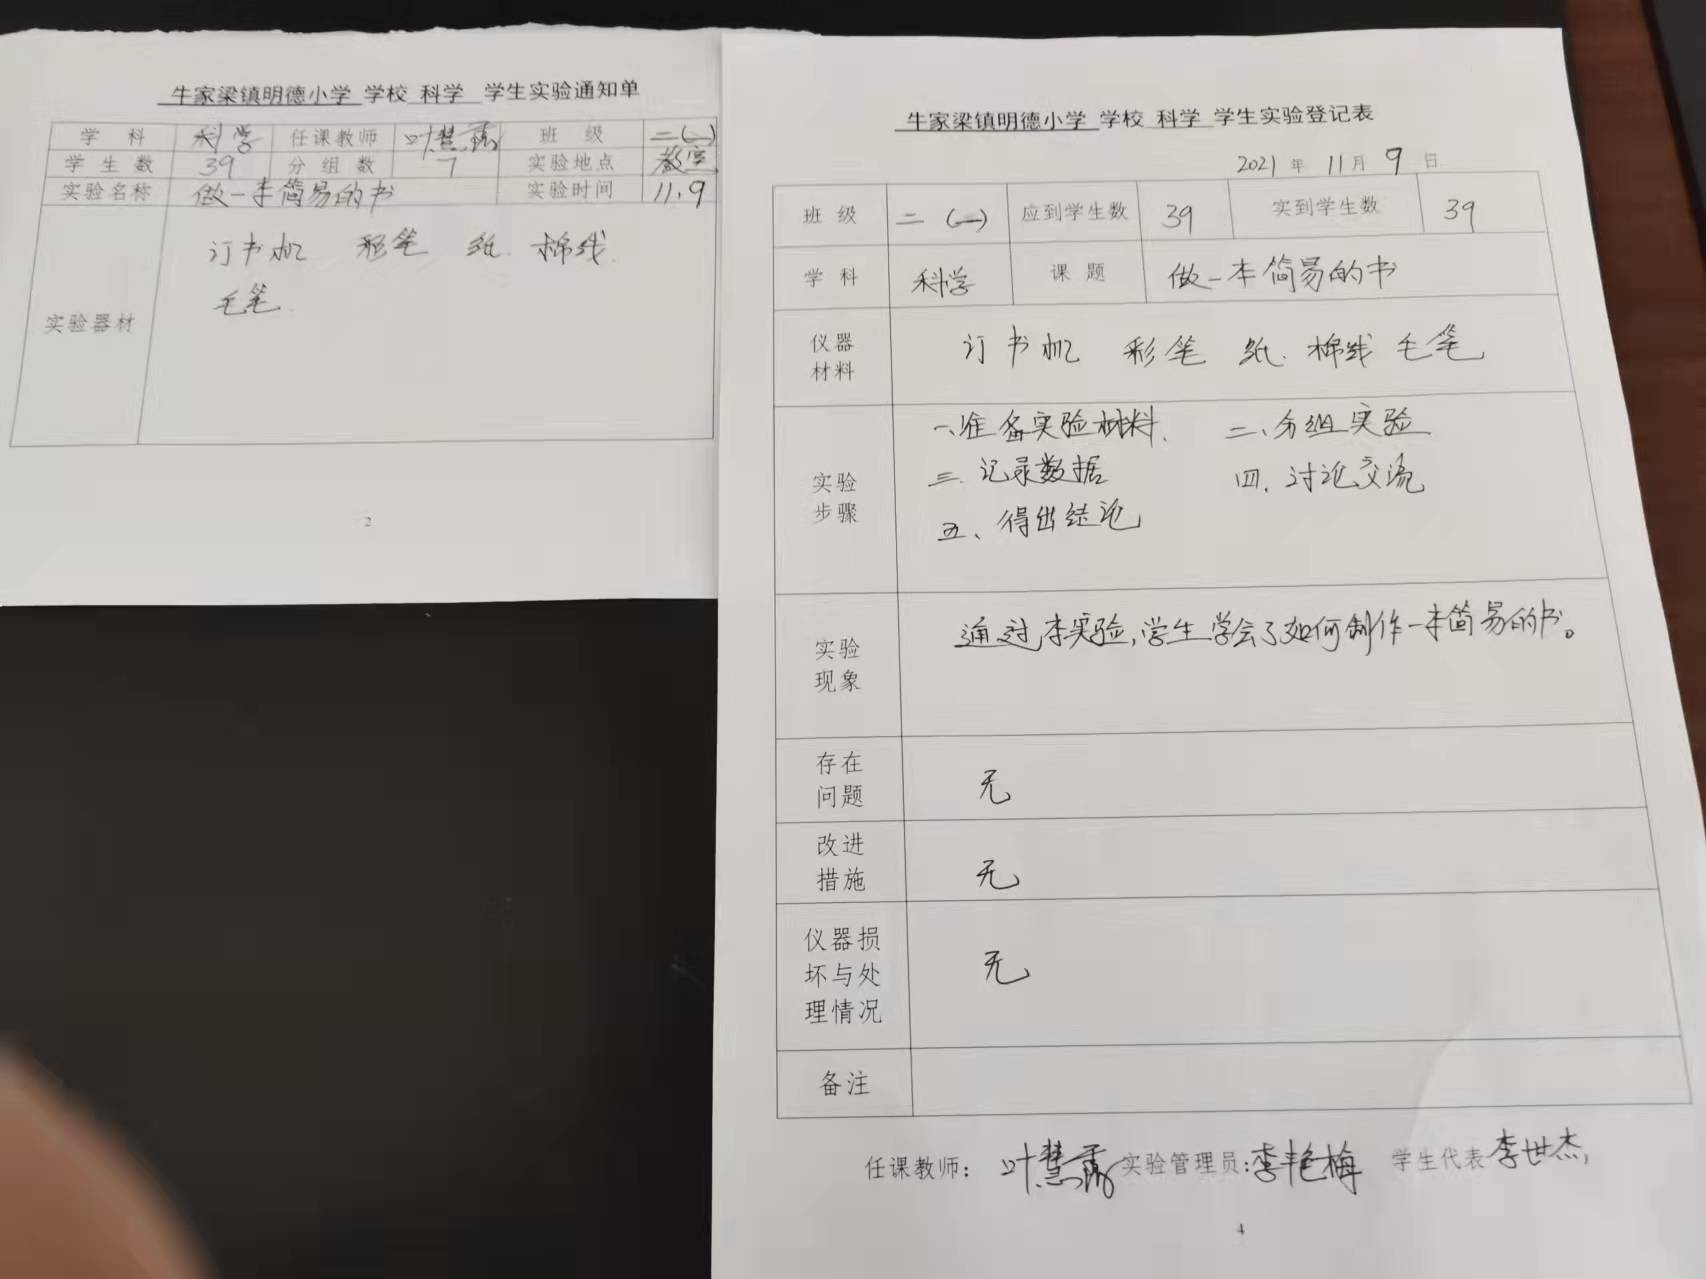 牛家梁镇明德小学 学校 科学 学生实验通知单
学 科 科学 任课教师 叶慧露 班 级 二(一)
学 生 数 39 分 组 数 7 实验地点 教室
实验名称 做一本简易的书 实验时间 11.9
订书机 彩笔 纸. 棉线.
毛笔.
实验器材
2
牛家梁镇明德小学 学校 科学 学生实验登记表
2021 年 11 月 9 日
班 级 二 (一) 应到学生数 39 实到学生数 39
学 科 科学 课 题 做一本简易的书
仪器
材料
订书机 彩笔 纸. 棉线 毛笔
实验
步骤
一、准备实验材料. 二、分组实验
三. 记录数据 四. 讨论交流
五、得出结论
实验
现象
通过本实验,学生学会了如何制作一本简易的书。
存在
问题
无
改进
措施
无
仪器损
坏与处
理情况
无
备注
任课教师: 叶慧露 实验管理员:李艳梅 学生代表 李世杰
4